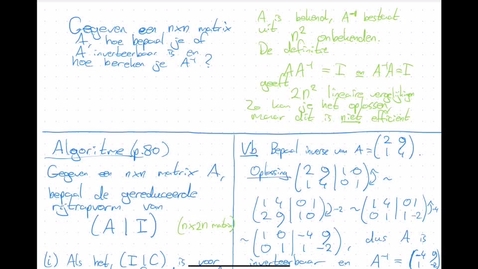 Gegeven een n×n matrix
A, hoe bepaal je of
A inverteerbaar is en
hoe bereken je A⁻¹ ?
A is bekend, A⁻¹ bestaat
uit n² onbekenden.
De definitie
A A⁻¹ = I = A⁻¹A = I
geeft
2n² lineaire vergelijkingen
Zo kan je het oplossen,
maar dit is niet efficiënt
Algoritme (p.80)
Gegeven een n×n matrix A,
bepaal de gereduceerde
rijtrapvorm van
(A | I) (n×2n matrix)
(i) Als het (I | C) is voor
Vb Bepaal inverse van A = (2 9; 1 4).
Oplossing (2 9 | 1 0; 1 4 | 0 1) ~
(1 4 | 0 1; 2 9 | 1 0) -2 ~ (1 4 | 0 1; 0 1 | 1 -2) -4
~ (1 0 | -4 9; 0 1 | 1 -2), dus A is
inverteerbaar en A⁻¹ = (-4 9; 1 -2)